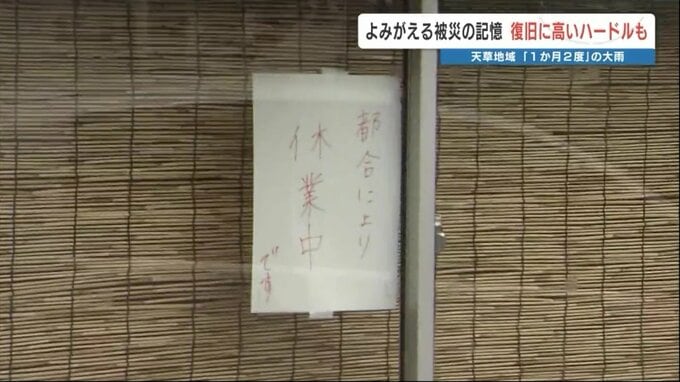 よみがえる被災の記憶 復旧に高いハードルも
天草地域 「1か月2度」の大雨
都合により
休業中
です